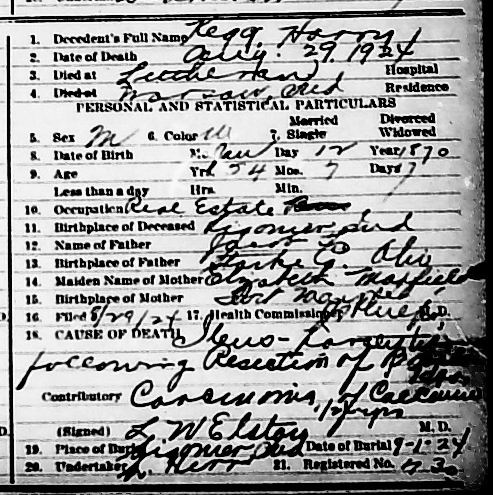 1. Decedent's Full Name Kegg, Harry
2. Date of Death Aug. 29, 1924
3. Died at Lutheran Hospital
4. Died at Warsaw, Ind Residence
PERSONAL AND STATISTICAL PARTICULARS
Married Divorced
5. Sex M 6. Color W 7. Single Widowed
8. Date of Birth Mo. Jan Day 12 Year 1870
9. Age Yrs. 54 Mos. 7 Days 17
Less than a day Hrs. Min.
10. Occupation Real Estate
11. Birthplace of Deceased Ligonier, Ind
12. Name of Father Jacob
13. Birthplace of Father Starke Co. Ohio
14. Maiden Name of Mother Elizabeth
15. Birthplace of Mother Fort Wayne
16. Filed 8/29/24 17. Health Commissioner M. D.
18. CAUSE OF DEATH Ileus
following Resection of
Contributory Carcinoma of
(Signed) M. D.
19. Place of Burial Ligonier Ind Date of Burial 9-1-24
20. Undertaker 21. Registered No.